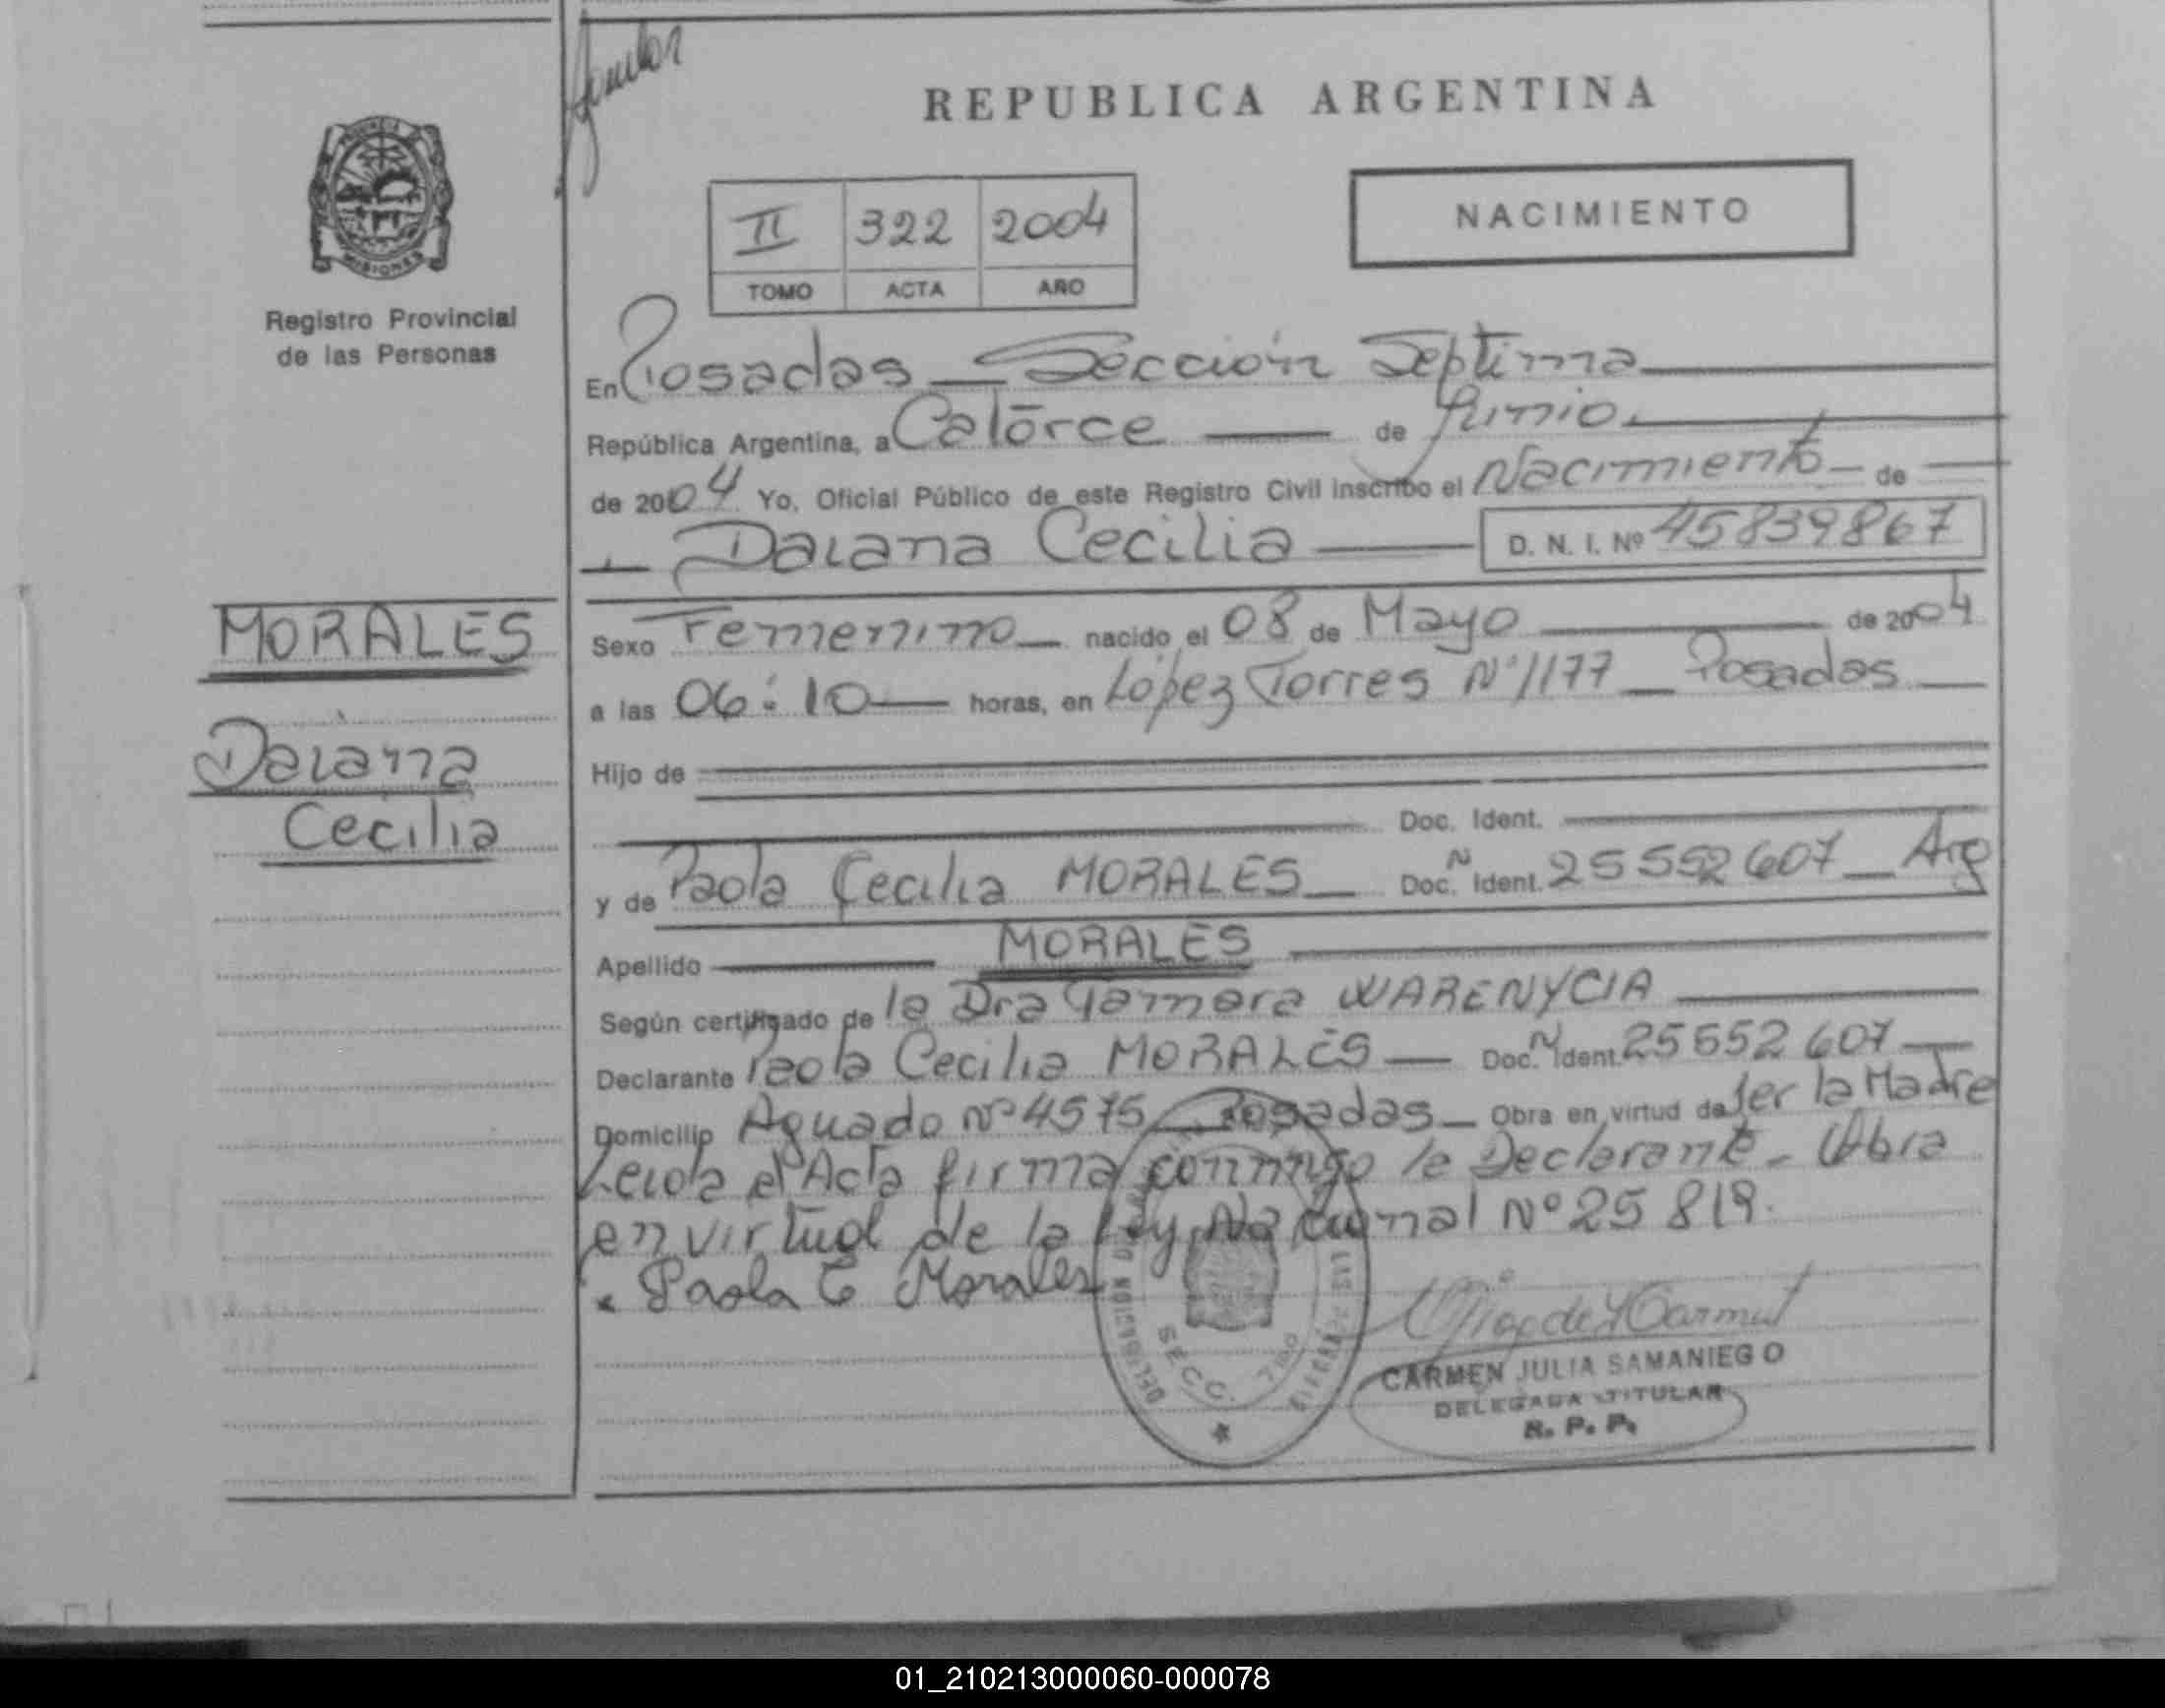 REPUBLICA ARGENTINA
II 322 2004
TOMO ACTA AÑO
NACIMIENTO
MISIONES
Registro Provincial
de las Personas
En Posadas Sección Septima
República Argentina, a Catorce de Junio
de 2004 Yo, Oficial Público de este Registro Civil inscribo el Nacimiento de
Daiana Cecilia D. N. I. Nº 45839867
MORALES
Daiana
Cecilia
Sexo Femenino nacido el 08 de Mayo de 2004
a las 06:10 horas, en López Torres Nº 1177 Posadas
Hijo de
Doc. Ident.
y de Paola Cecilia MORALES Doc. N Ident. 25552607 Arg
Apellido MORALES
Según certificado de la Dra Tamara WARENYCIA
Declarante Paola Cecilia MORALES Doc. N Ident. 25552607
Domicilio Aguado Nº 4575 Posadas Obra en virtud de Ser la Madre
Leida el Acta firma conmigo la Declarante - Obra
en virtud de la Ley Nacional Nº 25 819.
Paola C Morales
SECC. 7ma
CARMEN JULIA SAMANIEGO
DELEGADA TITULAR
R. P. P.
01_210213000060-000078